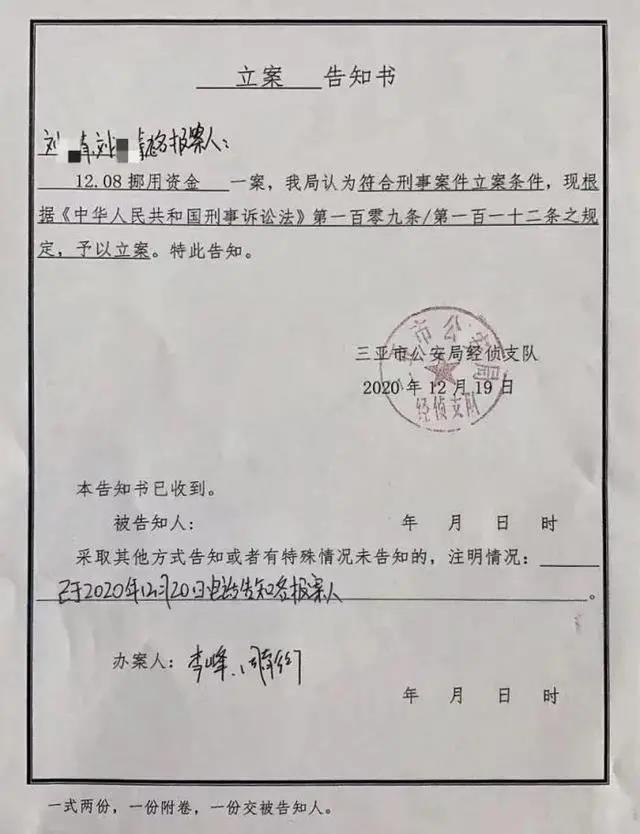 立案 告知书
刘 青、刘 等各报案人:
12.08挪用资金 一案,我局认为符合刑事案件立案条件,现根
据《中华人民共和国刑事诉讼法》第一百零九条/第一百一十二条之规
定,予以立案。特此告知。
三亚市公安局经侦支队
2020年12月19日
三亚市公安局
经侦支队
本告知书已收到。
被告知人: 年 月 日 时
采取其他方式告知或者有特殊情况未告知的,注明情况:
已于2020年12月20日电话告知各报案人。
办案人:李峰、周
年 月 日 时
一式两份,一份附卷,一份交被告知人。